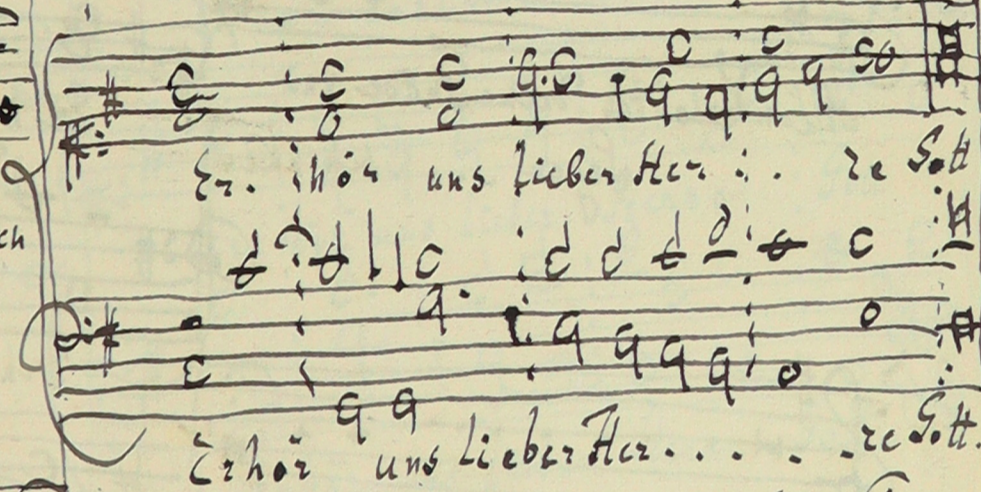 Er. hör uns lieber Her . . re Gott
ch
Erhör uns lieber Her. . . . . . re Gott.